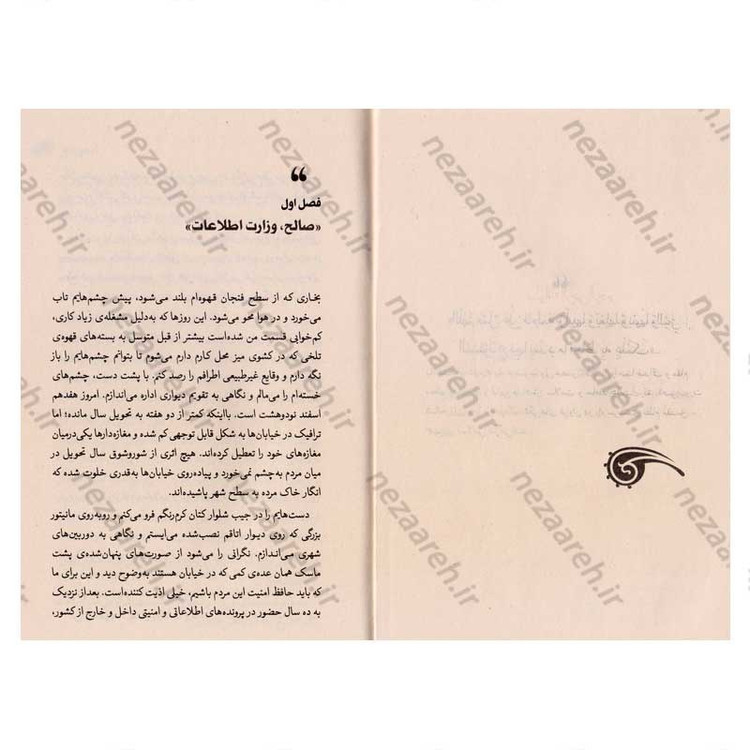 فصل اول
«صالح، وزارت اطلاعات»
بخاری که از سطح فنجان قهوه‌ام بلند می‌شود، پیش چشم‌هایم تاب
می‌خورد و در هوا محو می‌شود. این روزها که به‌دلیل مشغله‌ی زیاد کاری،
کم‌خوابی قسمت من شده‌است بیشتر از قبل متوسل به بسته‌های قهوه‌ی
تلخی که در کشوی میز محل کارم دارم می‌شوم تا بتوانم چشم‌هایم را باز
نگه دارم و وقایع غیرطبیعی اطرافم را رصد کنم. با پشت دست، چشم‌های
خسته‌ام را می‌مالم و نگاهی به تقویم دیواری اداره می‌اندازم. امروز هفدهم
اسفند نودوهشت است. بااینکه کمتر از دو هفته به تحویل سال مانده؛ اما
ترافیک در خیابان‌ها به شکل قابل توجهی کم شده و مغازه‌دارها یکی‌درمیان
مغازه‌های خود را تعطیل کرده‌اند. هیچ اثری از شوروشوق سال تحویل در
میان مردم به‌چشم نمی‌خورد و پیاده‌روی خیابان‌ها به‌قدری خلوت شده که
انگار خاک مرده به سطح شهر پاشیده‌اند.
دست‌هایم را در جیب شلوار کتان کرم‌رنگم فرو می‌کنم و روبه‌روی مانیتور
بزرگی که روی دیوار اتاقم نصب‌شده می‌ایستم و نگاهی به دوربین‌های
شهری می‌اندازم. نگرانی را می‌شود از صورت‌های پنهان‌شده‌ی پشت
ماسک همان عده‌ی کمی که در خیابان هستند به‌وضوح دید و این برای ما
که باید حافظ امنیت این مردم باشیم، خیلی اذیت کننده‌است. بعداز نزدیک
به ده سال حضور در پرونده‌های اطلاعاتی و امنیتی داخل و خارج از کشور،
nezaareh.ir
nezaareh.ir
nezaareh.ir
nezaareh.ir
nezaareh.ir
nezaareh.ir
nezaareh.ir
nezaareh.ir
nezaareh.ir
nezaareh.ir
nezaareh.ir
nezaareh.ir